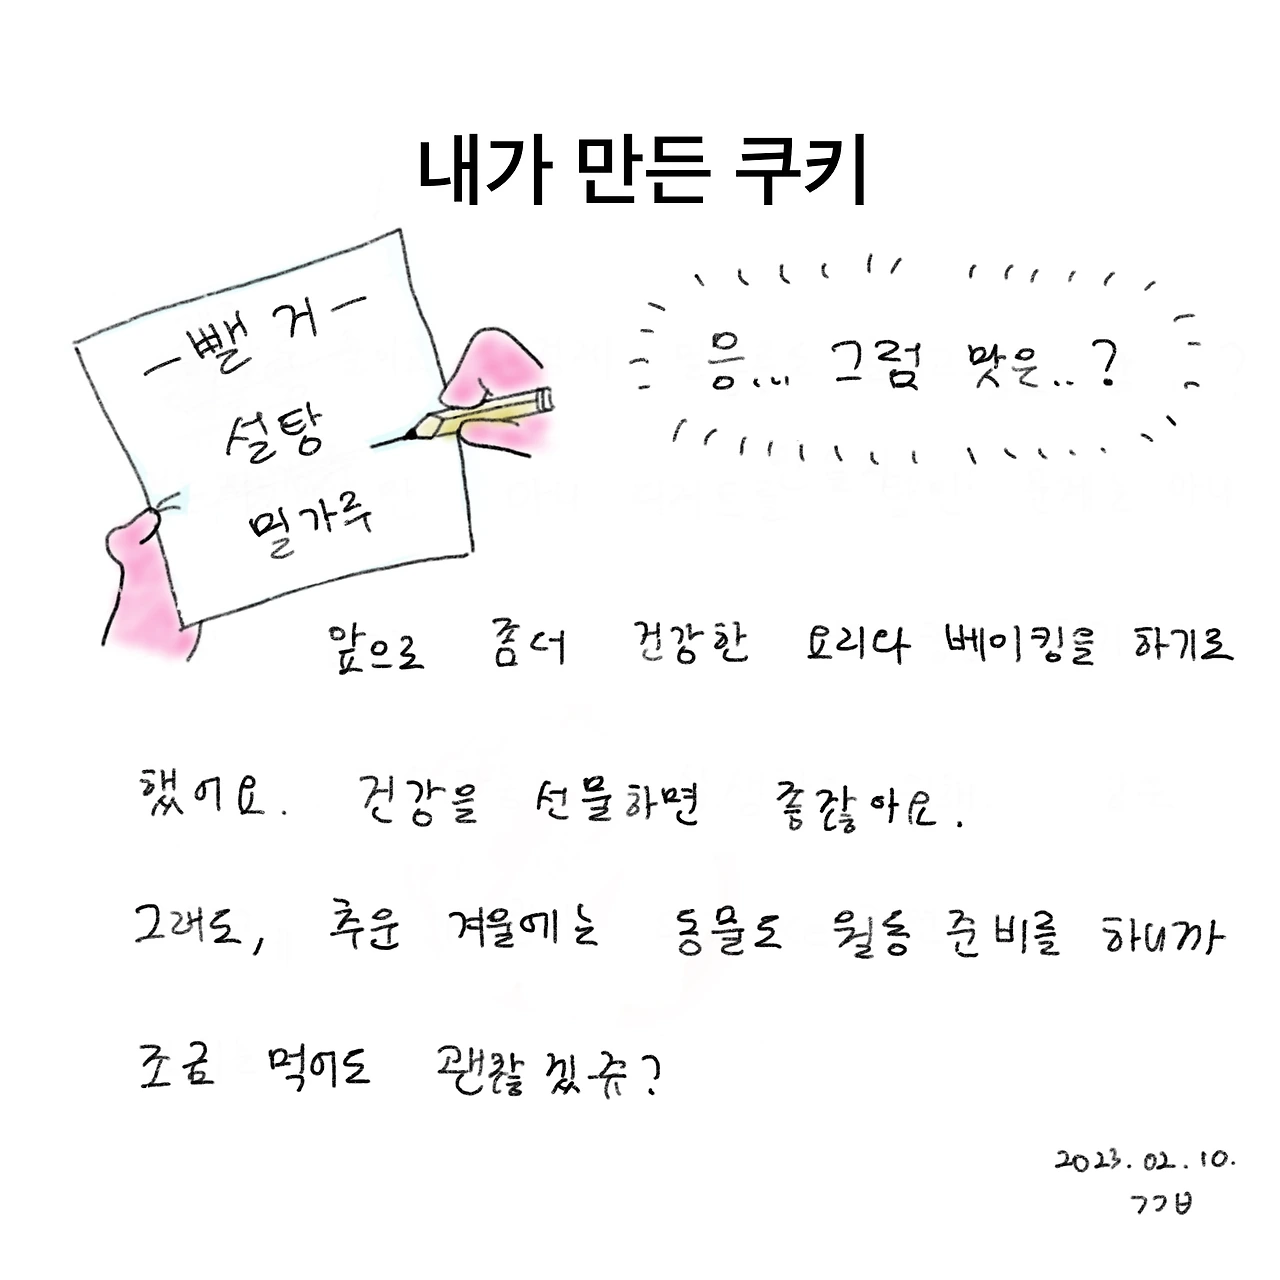 내가 만든 쿠키
- 뺄 거 -
설탕
밀가루
응... 그럼 맛은..?
앞으로 좀더 건강한 요리나 베이킹을 하기로
했어요. 건강을 선물하면 좋잖아요.
그래도, 추운 겨울에는 동물도 월동 준비를 하니까
조금 먹어도 괜찮겠쥬?
2023.02.10.
ㄱㄱㅂ